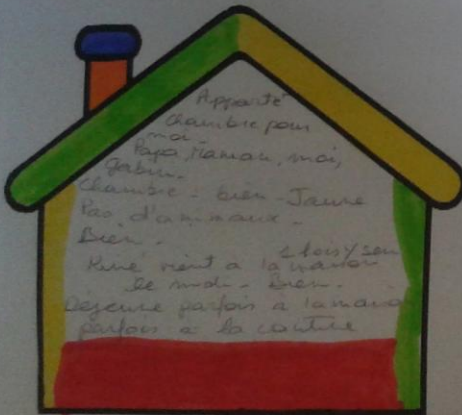 Apparte
chambre pour
moi.
Papa, Maman, moi,
Gabin.
Chambre - bien - Jaune
Pas d'animaux.
Bien.
2 fois/sem
vient à la maison
le midi. Bien.
Déjeune parfois à la maison
parfois à la cantine